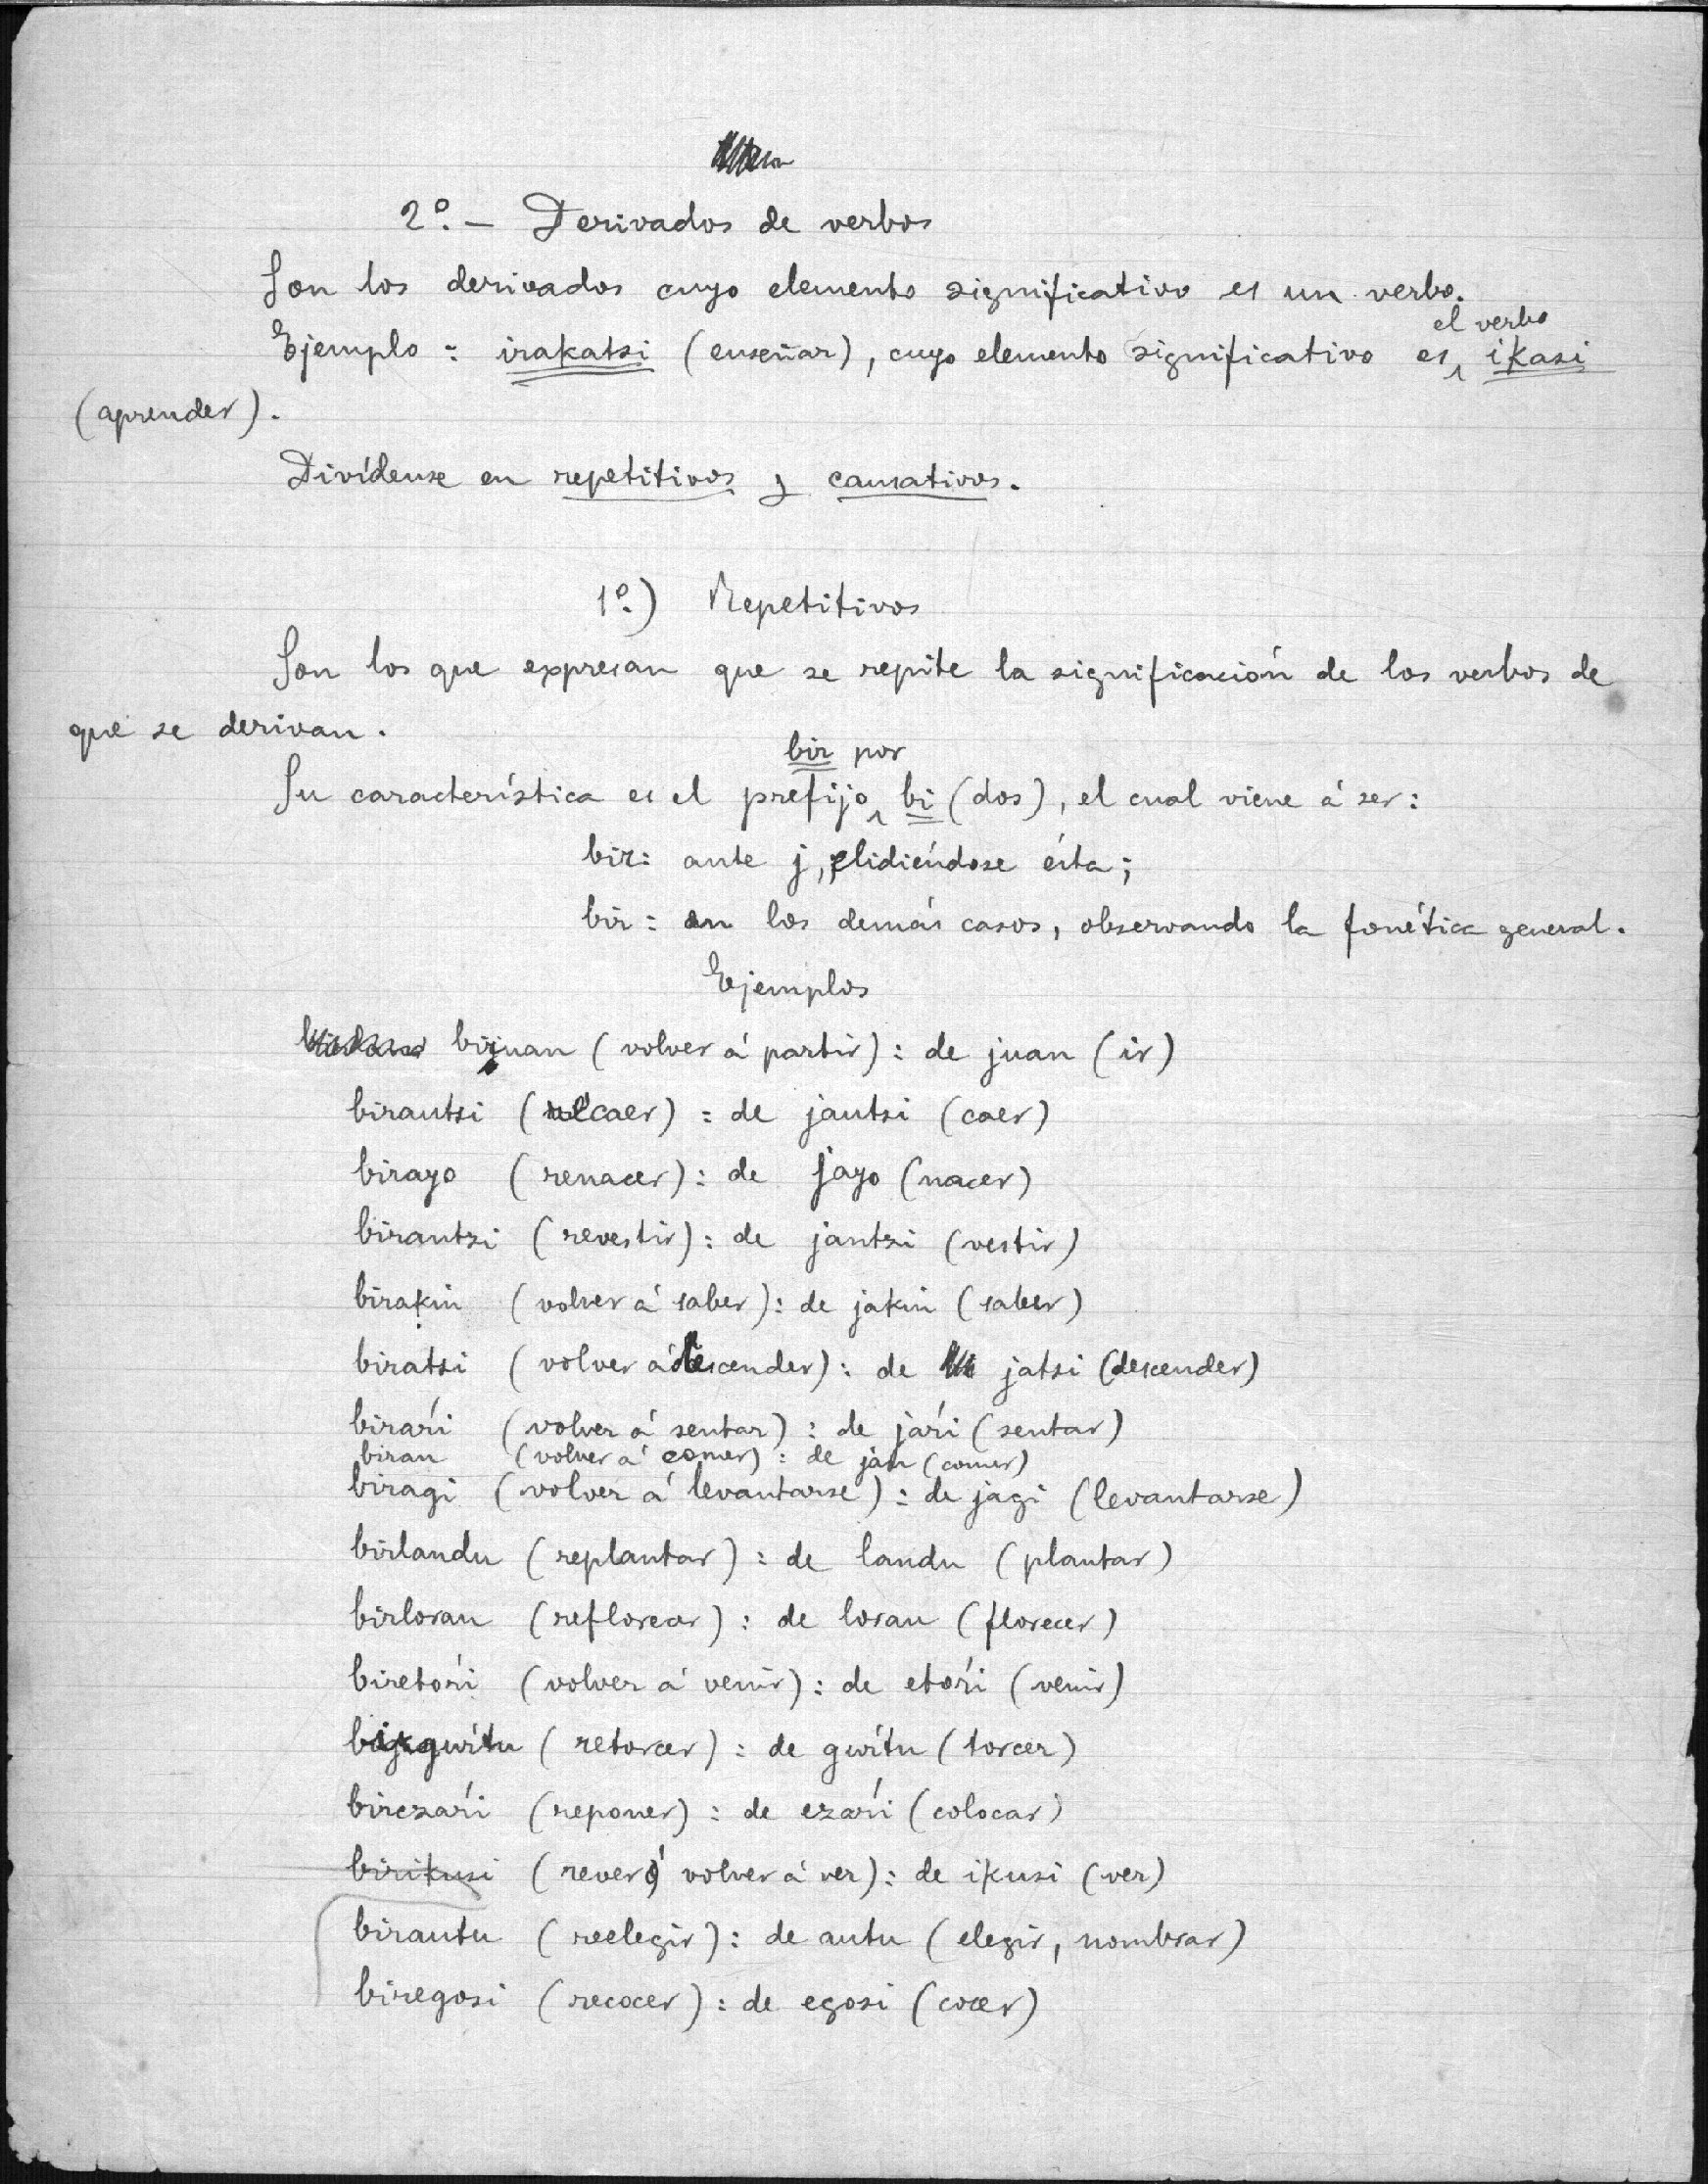 2º.— Derivados de verbos
Son los derivados cuyo elemento significativo es un verbo.
el verbo
Ejemplo: irakatsi (enseñar), cuyo elemento significativo es ikasi
(aprender).
Divídense en repetitivos y causativos.
1º.) Repetitivos
Son los que expresan que se repite la significación de los verbos de
que se derivan.
bir por
Su característica es el prefijo bi (dos), el cual viene á ser:
bir: ante j, elidiéndose ésta;
bir: en los demás casos, observando la fonética general.
Ejemplos
biruan (volver á partir): de juan (ir)
birautsi (recaer): de jautsi (caer)
birayo (renacer): de jayo (nacer)
birantzi (revestir): de jantzi (vestir)
birakin (volver á saber): de jakin (saber)
biratsi (volver á descender): de jatsi (descender)
biraŕi (volver á sentar): de jaŕi (sentar)
biran (volver á comer): de jan (comer)
biragi (volver á levantarse): de jagi (levantarse)
birlandu (replantar): de landu (plantar)
birloran (reflorecer): de loran (florecer)
biretoŕi (volver á venir): de etoŕi (venir)
(retorcer): de (torcer)
birezaŕi (reponer): de ezaŕi (colocar)
birikusi (rever ó volver á ver): de ikusi (ver)
birautu (reelegir): de autu (elegir, nombrar)
biregosi (recocer): de egosi (cocer)